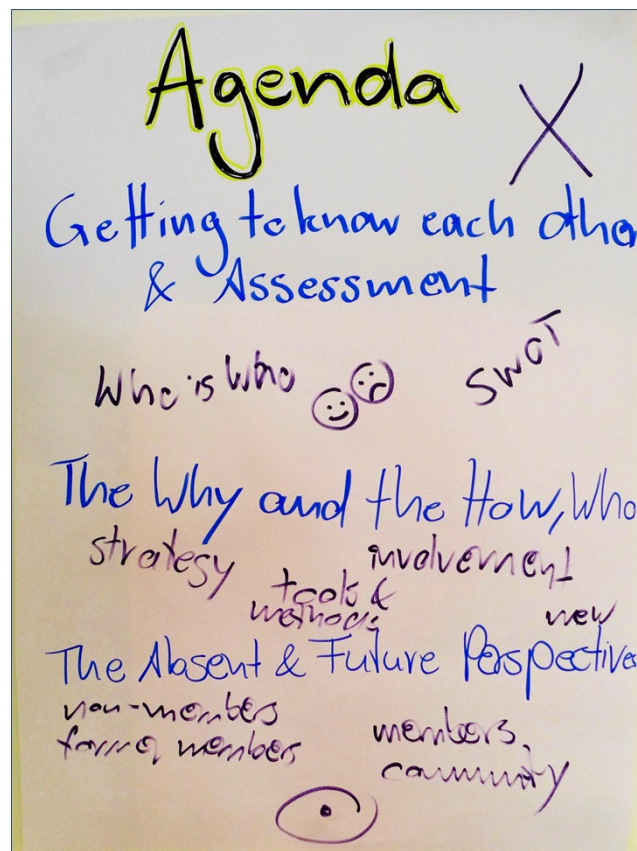 Agenda
X
Getting to know each other
& Assessment
Who is Who
SWOT
The Why and the How, Who
strategy
involvement
tools &
methods
new
The Absent & Future Perspective
non-members
former members
members,
community